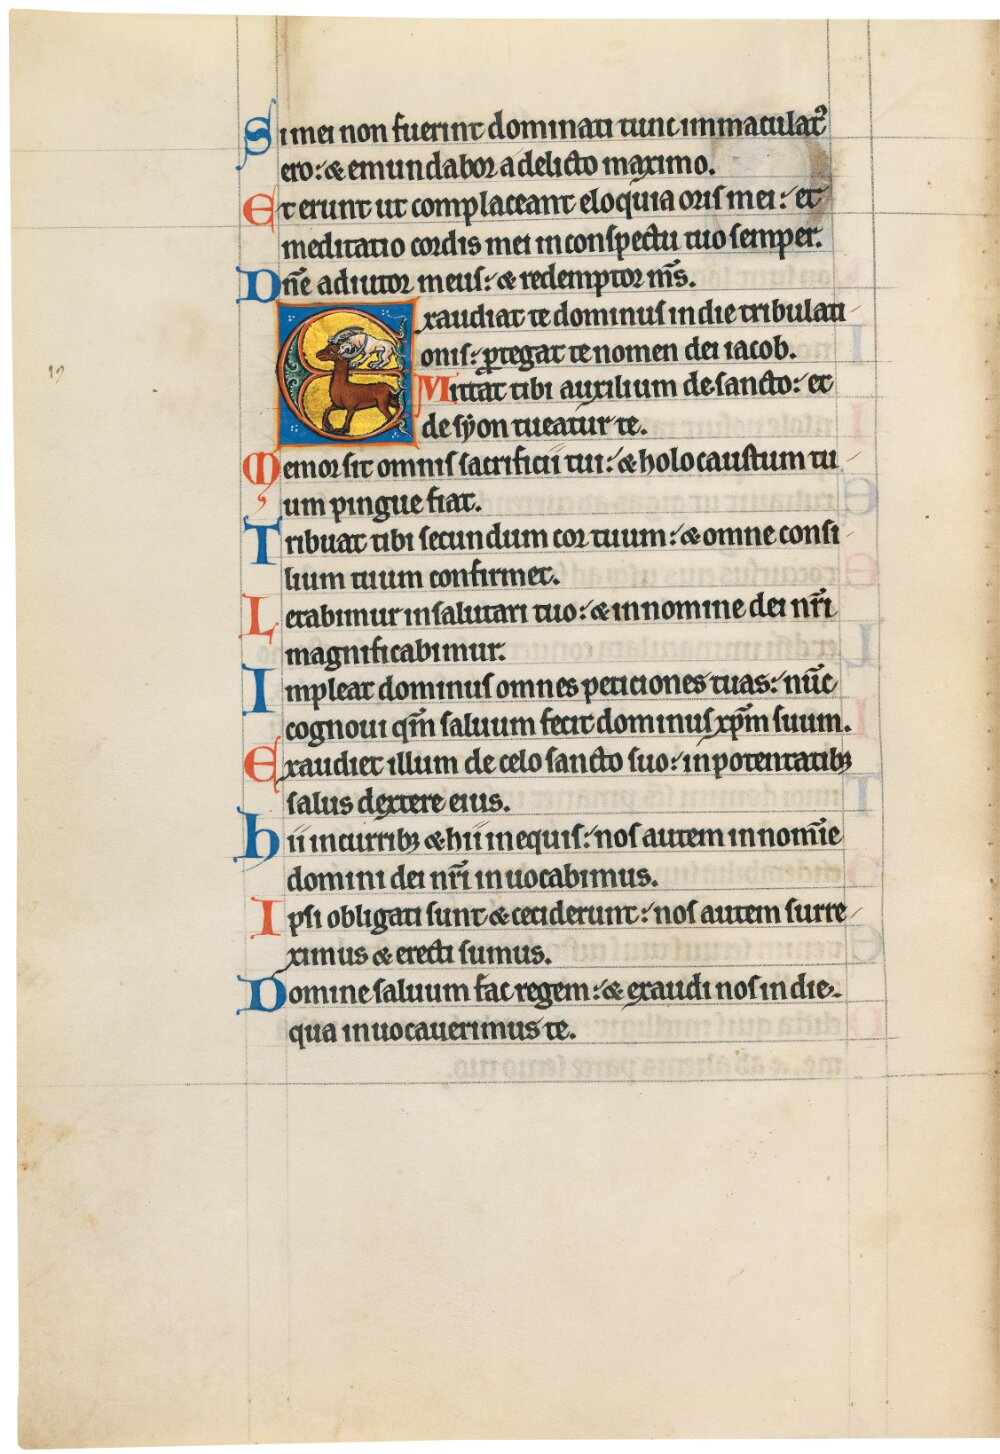 Si mei non fuerint dominati tunc immaculatꝰ
ero: & emundabor a delicto maximo.
Et erunt ut complaceant eloquia oris mei: et
meditatio cordis mei in conspectu tuo semper.
Dn̄e adiutor meus: & redemptor m̄s.
Exaudiat te dominus in die tribulati
onis: ꝓtegat te nomen dei iacob.
Mittat tibi auxilium de sancto: et
de syon tueatur te.
Memor sit omnis sacrificii tui: & holocaustum tu
um pingue fiat.
Tribuat tibi secundum cor tuum: & omne consi
lium tuum confirmet.
Letabimur in salutari tuo: & in nomine dei nr̄i
magnificabimur.
Impleat dominus omnes peticiones tuas: nūc
cognoui qm̄ saluum fecit dominus xp̄m suum.
Exaudiet illum de celo sancto suo: in potentatibꝫ
salus dextere eius.
hii in curribꝫ & hii in equis: nos autem in nomīe
domini dei nr̄i inuocabimus.
Ipsi obligati sunt & ceciderunt: nos autem surre
ximus & erecti sumus.
Domine saluum fac regem: & exaudi nos in die
qua inuocauerimus te.